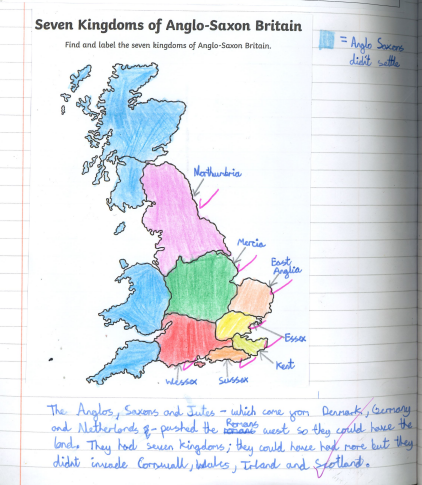 Seven Kingdoms of Anglo-Saxon Britain
Find and label the seven kingdoms of Anglo-Saxon Britain.
= Anglo Saxons
didn't settle
Northunbria
Mercia
East
Anglia
Essex
Kent
Wessex
Sussex
The Anglos, Saxons and Jutes - which came from Denmark, Germany
and Netherlands - pushed the Romans west so they could have the
land. They had seven kingdoms; they could have had more but they
didnt invade Cornwall, Wales, Irland and Scotland.